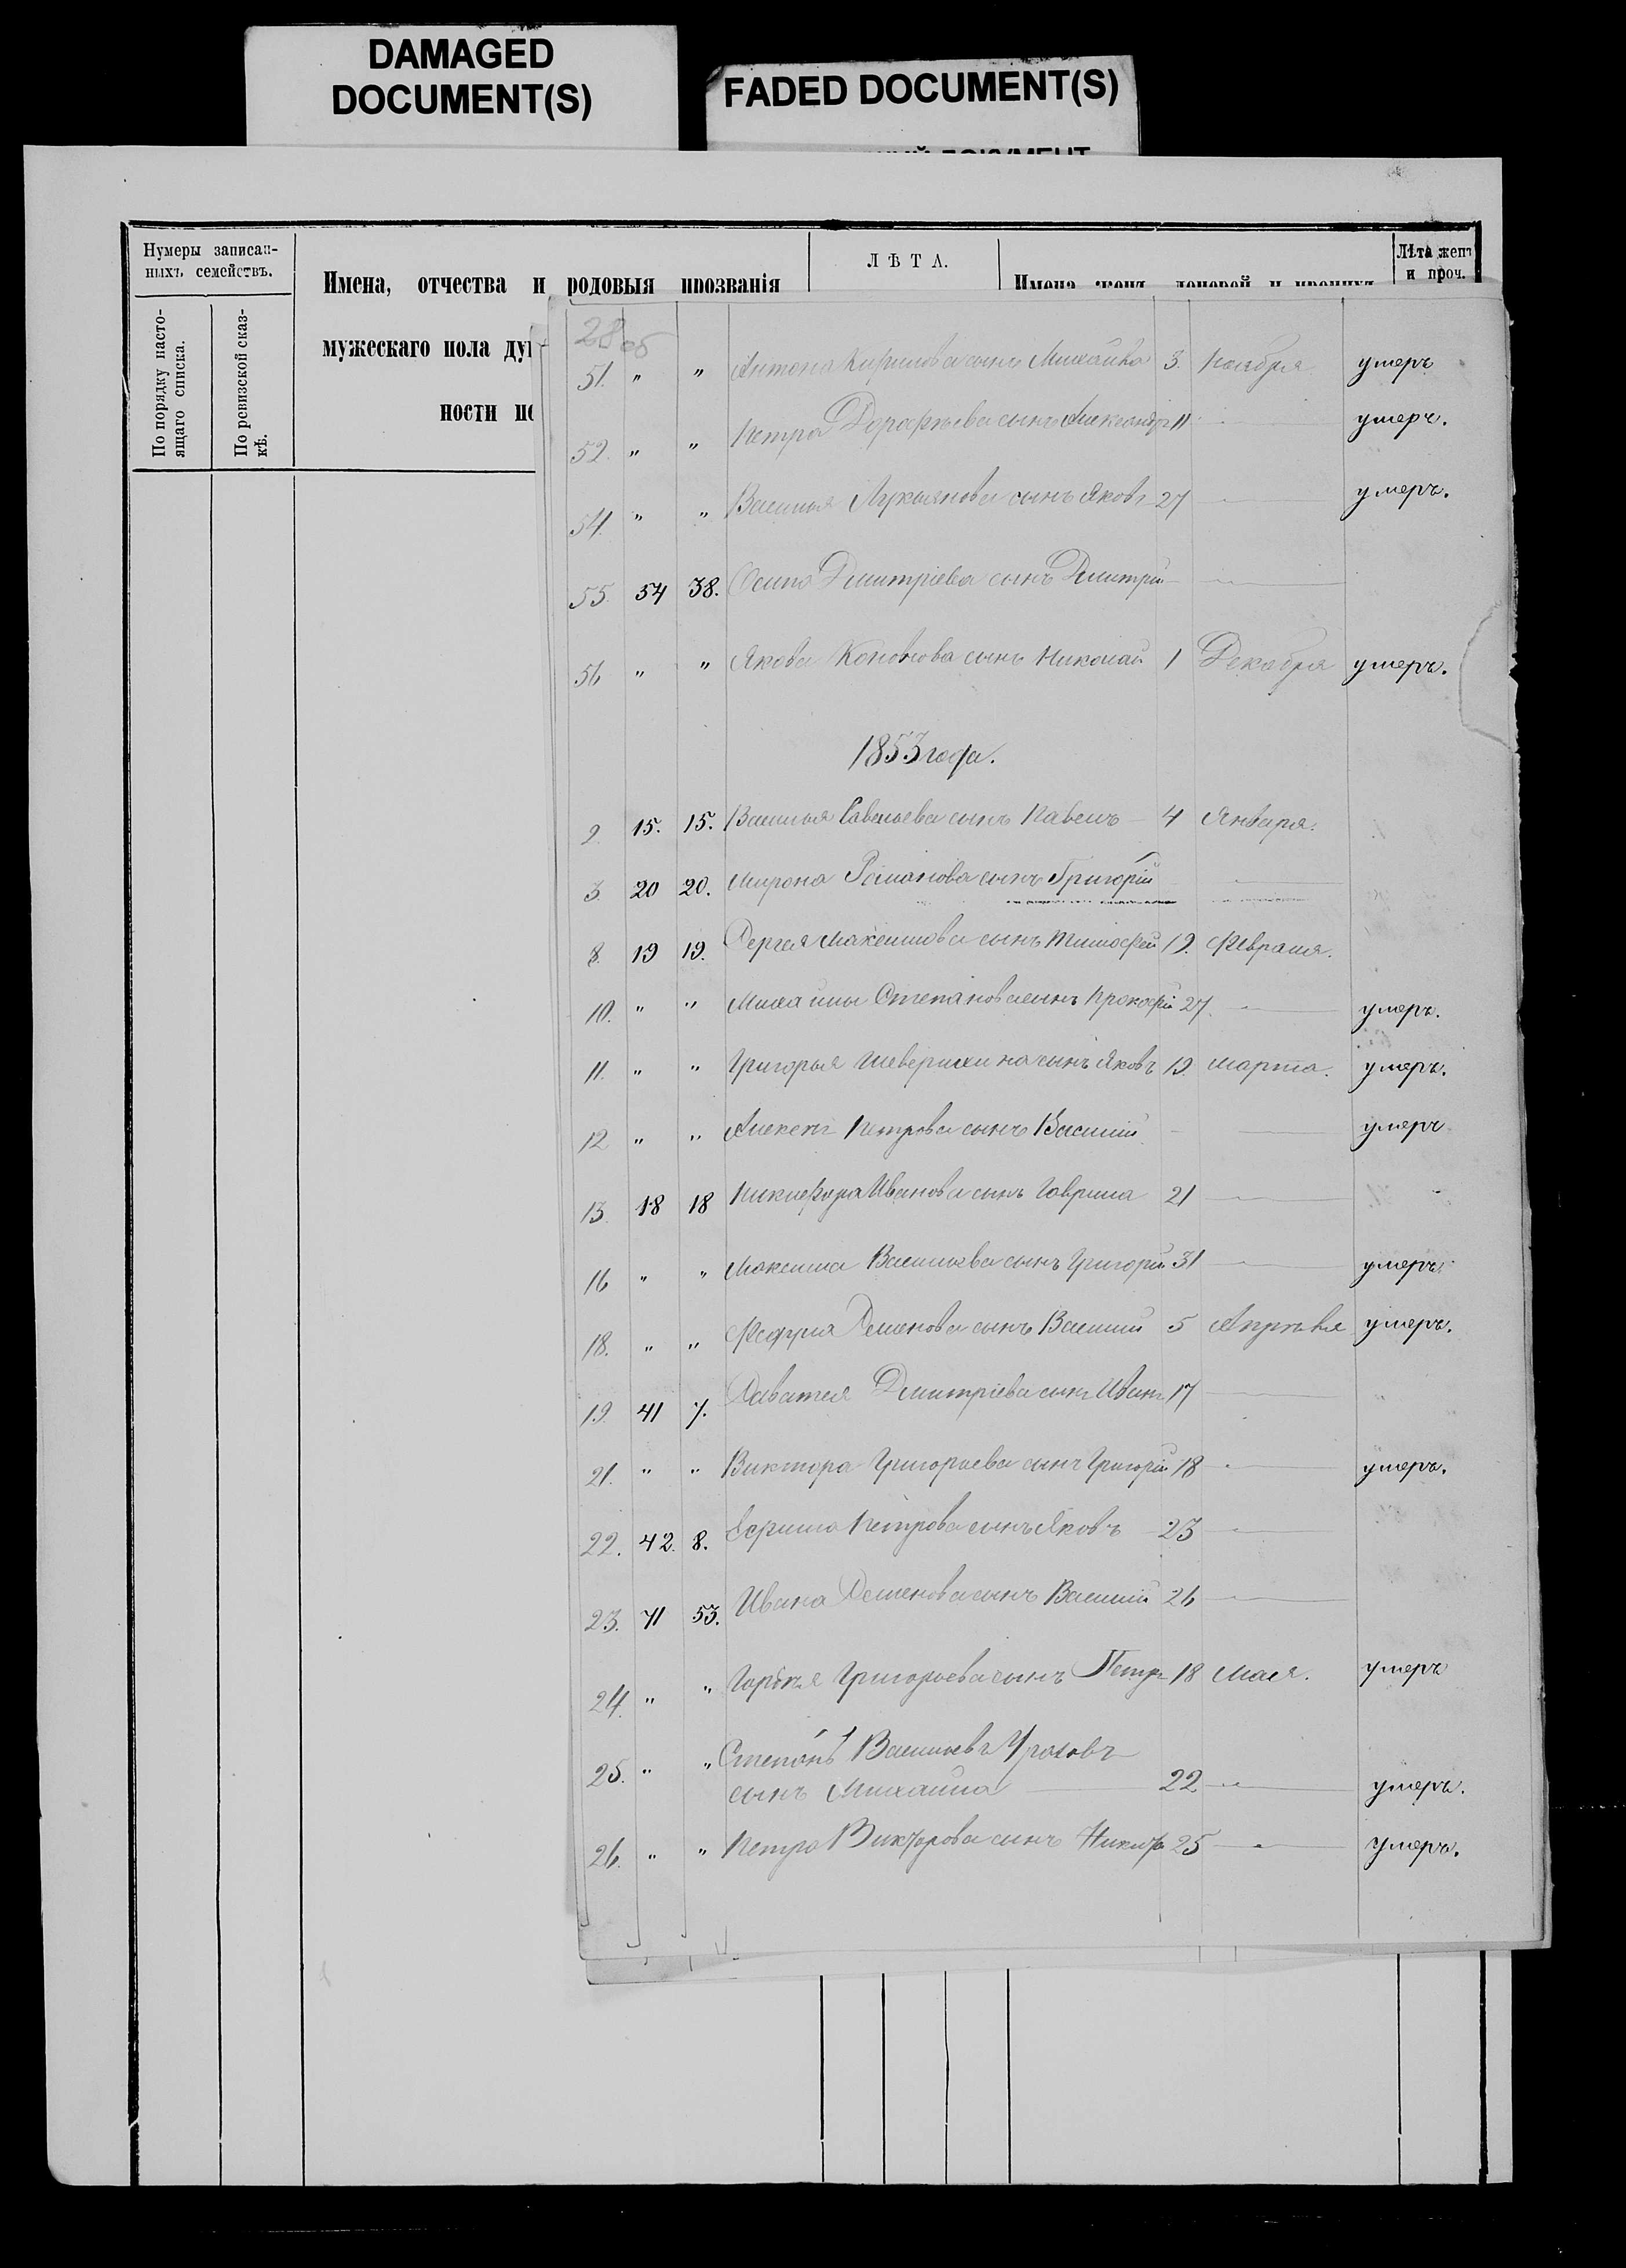 DAMAGED
DOCUMENT(S)
FADED DOCUMENT(S)
Нумеры записан-
ныхъ семействъ.
По порядку насто-
ящаго списка.
По ревизской сказ-
кѣ.
Имена, отчества и родовыя прозванія
мужескаго пола ду
ности по
ЛѢТА.
Имена женъ, дочерей и прочихъ
Лѣта женъ
и проч.
28 об
51. " " Антона Кирилова сынъ Михайла 3. Ноября умеръ
52. " " Петра Дорофѣева сынъ Александръ 11 — умеръ.
54. " " Василья Лукьянова сынъ Яковъ 27 — умеръ.
55. 54 38. Осипа Дмитріева сынъ Дмитрій — —
56 " " Якова Коновова сынъ Николай 1 Декабря умеръ.
1853 года.
2. 15. 15. Василья Савельева сынъ Павелъ — 4 Января.
3. 20 20. Мирона Романова сынъ Григорій —
8. 19 19. Сергея Максимова сынъ Тимофей 19. Февраля.
10. " " Михаилы Степанова сынъ Прокофій 27. — умеръ.
11. " " Григорья сынъ Яковъ 19. Марта. умеръ.
12 " " Алексея Петрова сынъ Василий — — умеръ
13. 18 18 Никифора Иванова сынъ Гаврила 21 —
16 " " Максима Васильева сынъ Григорій 31 — умеръ.
18. " " Федула Семенова сынъ Василий 5 Апрѣля умеръ.
19. 41 7. Саватея Дмитріева сынъ Иванъ 17 —
21. " " Виктора Григорьева сынъ Григорій 18 — умеръ.
22. 42. 8. Ефима Петрова сынъ Яковъ 23 —
23. 71 53. Ивана Семенова сынъ Василий 26 —
24. " " Григорьева сынъ Петръ 18 Мая. умеръ
25. " " Степанъ Васильевъ
сынъ Михаила — 22 — умеръ.
26. " " Петра Викторова сынъ 25 — умеръ.